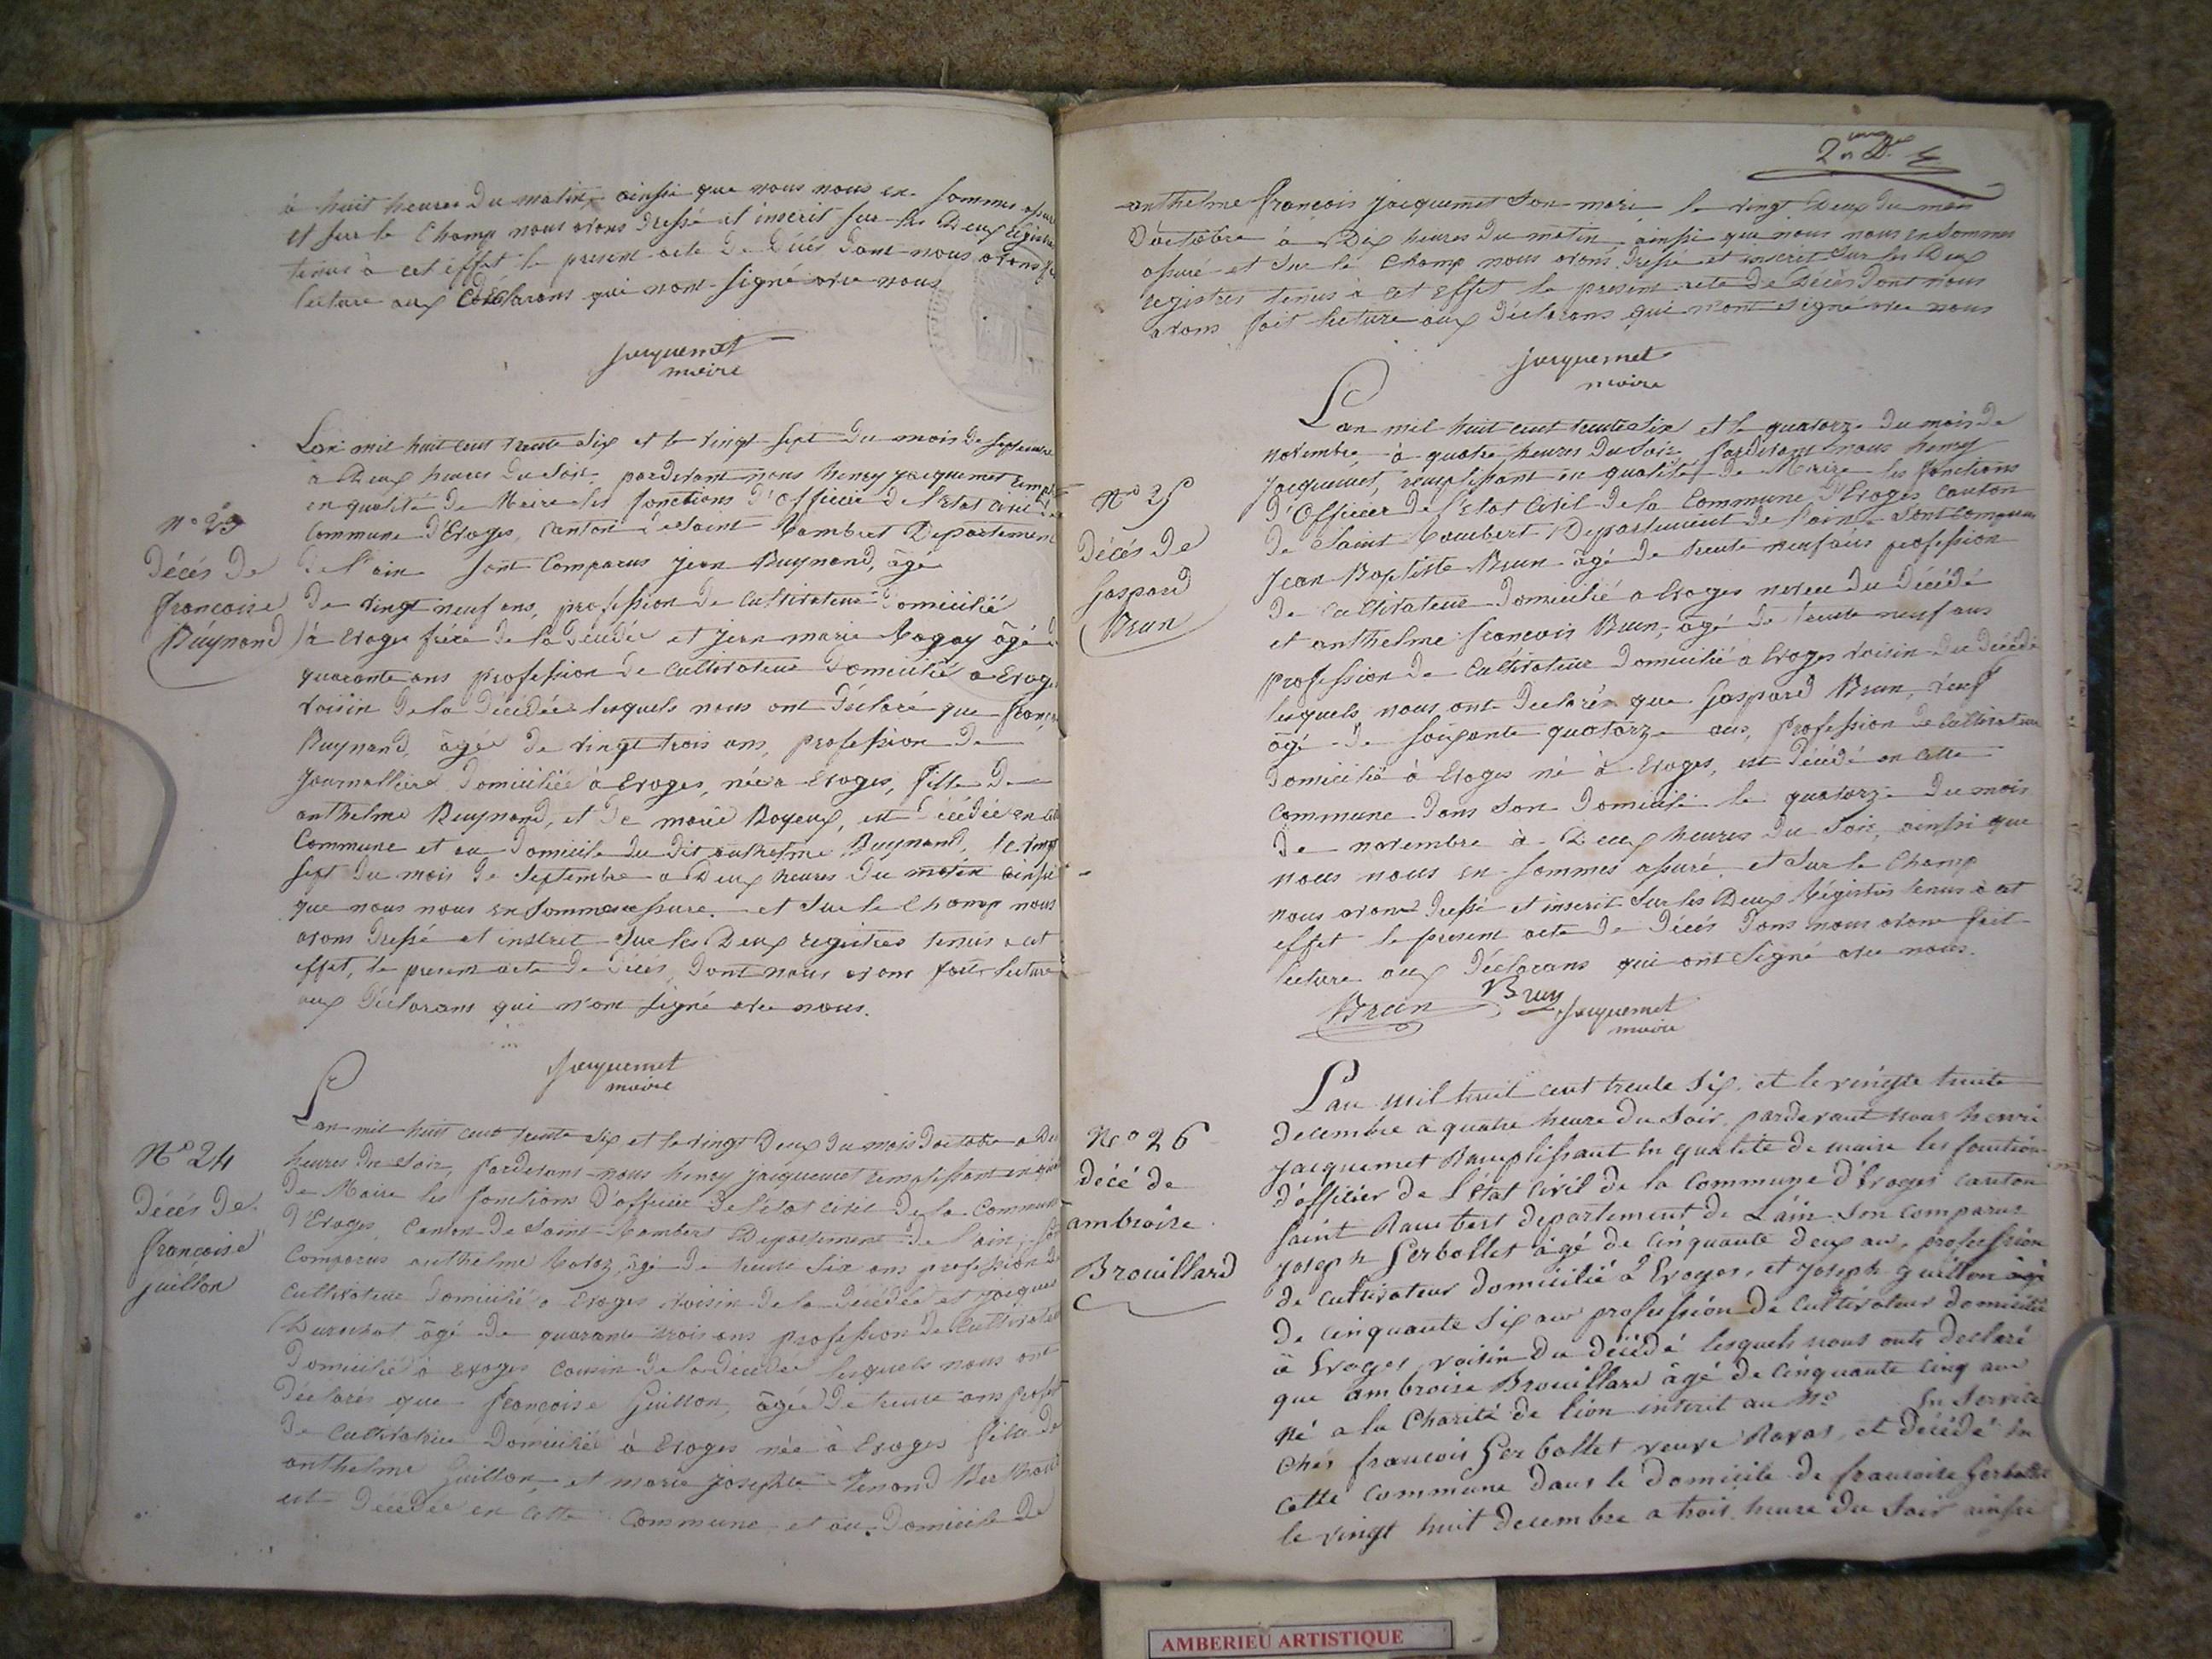 à huit heures du matin, ainsi que nous nous en sommes
et sur le champ nous avons dressé et inscrit sur les deux
tenus à cet effet le present acte de décés dont nous avons
lecture aux déclarans qui n'ont signé avec nous
Jacquemet
maire
L'an mil huit cent trente six et le vingt sept du mois de septembre
à deux heures du soir, pardevant nous henry jacquemet
en qualité de Maire les fonctions d'officier de l'Etat civil de
N° 23
commune d'Evoges, canton de Saint Rambert Departement
Décés de
de l'ain sont comparus jean Buynand, âgé
françoise
de vingt neuf ans, profession de cultivateur domicilié
Buynand
à Evoges frère de la décédée et jean marie âgé
quarante ans profession de cultivateur domicilié a Evoges
voisin de la décédée lesquels nous ont déclaré que
Buynand, âgée de vingt trois ans, profession de
journallière domiciliée à Evoges, née a Evoges, fille de
anthelme Buynand, et de marie Boyeux, est décédée en
commune et au domicile du dit anthelme Buynand, le vingt
sept du mois de septembre a deux heures du matin ainsi
que nous nous en sommes assuré. et sur le champ nous
avons dressé et inscrit sur les deux registres tenus a cet
effet, le present acte de décés, dont nous avons fait lecture
aux déclarans qui n'ont signé avec nous.
Jacquemet
maire
L'an mil huit cent trente six et le vingt deux du mois d'octobre a
N° 24
heures du soir, pardevant nous henry jacquemet remplissant en
Décés de
de Maire les fonctions d'officier de l'état civil de la commune
françoise
d'Evoges, canton de Saint Rambert Departement de l'ain,
guillon
comparus anthelme âgé de trente six ans profession de
cultivateur domicilié a Evoges voisin de la décédée et jacques
âgé de quarante trois ans profession de cultivateur
domicilié à Evoges cousin de la décédée lesquels nous ont
déclarés que françoise Guillon, âgée de trente ans
de cultivatrice domiciliée à Evoges née à Evoges fille de
anthelme Guillon, et marie josephte
est décédée en cette commune et au domicile de
anthelme françois jacquemet son mari le vingt deux du mois
d'octobre à dix heures du matin ainsi que nous nous en sommes
assuré et sur le champ nous avons dressé et inscrit sur les deux
registres tenus à cet effet le present acte de décés dont nous
avons fait lecture aux déclarans qui n'ont signé avec nous
Jacquemet
maire
L'an mil huit cent trente six et le quatorze du mois de
novembre, à quatre heures du soir, pardevant nous henry
jacquemet, remplissant en qualité de Maire les fonctions
N° 25
d'Officier de l'Etat Civil de la Commune d'Evoges canton
Décés de
de Saint Rambert Departement de l'ain sont comparus
Gaspard
jean Baptiste Brun âgé de trente neuf ans profession
Brun
de cultivateur domicilié a Evoges neveu du décédé
et anthelme françois Brun, âgé de trente neuf ans
profession de cultivateur domicilié à Evoges voisin du décédé
lesquels nous ont déclarés que Gaspard Brun, veuf
âgé de soixante quatorze ans, profession de cultivateur
domicilié à Evoges né à Evoges, est décédé en cette
commune dans son domicile le quatorze du mois
de novembre à deux heures du soir, ainsi que
nous nous en sommes assuré, et sur le champ
nous avons dressé et inscrit sur les deux Régistres tenus à cet
effet le present acte de décés dont nous avons fait
lecture aux déclarans qui ont signé avec nous.
Brun Brun Jacquemet
maire
L'an mil huit cent trente six, et le vingte huite
N° 26
decembre a quatre heure du soir, pardevant nous henri
décé de
jacquemet Ramplissant en qualité de maire les fonction
ambroise
d'officier de l'état civil de la commune d'Evoges canton
Brouillard
saint Rambert departement de L'ain son comparus
joseph Gerbollet âgé de cinquante deux an, profession
de cultivateur domicilié à Evoges, et joseph guillon âgé
de cinquante six an profession de cultivateur domicilié
à Evoges, voisin du décédé lesquels nous onts declaré
que ambroise Brouillard âgé de cinquante cinq ans
né a la Charité de lion inscrit au N° En Service
chés francois Gerbollet veuve Ravat, et décédé en
cette commune dans le domicile de francoise Gerbollet
le vingt huit decembre a trois heure du soir ainsi
AMBERIEU ARTISTIQUE